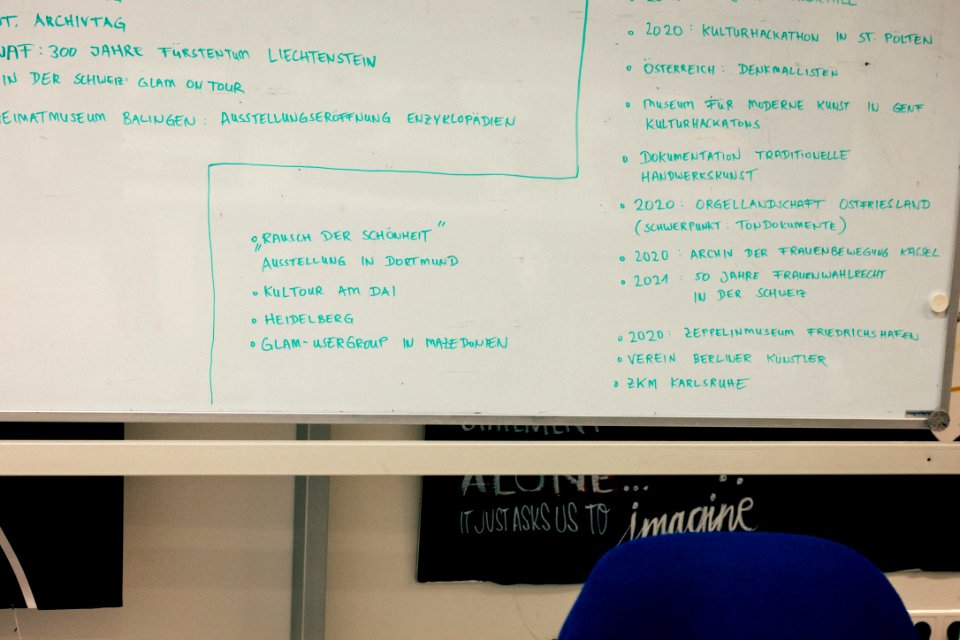 ST. ARCHIVTAG
WAF: 300 JAHRE FÜRSTENTUM LIECHTENSTEIN
IN DER SCHWEIZ' GLAM ON TOUR
HEIMATMUSEUM BALINGEN: AUSSTELLUNGSERÖFFNUNG ENZYKLOPÄDIEN
"RAUSCH DER SCHÖNHEIT"
AUSSTELLUNG IN DORTMUND
KULTOUR AM DAI
HEIDELBERG
GLAM-USERGROUP IN MAZEDONIEN
2020: KULTURHACKATHON IN ST. PÖLTEN
ÖSTERREICH: DENKMALLISTEN
MUSEUM FÜR MODERNE KUNST IN GENF
KULTURHACKATONS
DOKUMENTATION TRADITIONELLE
HANDWERKSKUNST
2020: ORGELLANDSCHAFT OSTFRIESLAND
(SCHWERPUNKT: TONDOKUMENTE)
2020: ARCHIV DER FRAUENBEWEGUNG KASSEL
2021: 50 JAHRE FRAUENWAHLRECHT
IN DER SCHWEIZ
2020: ZEPPELINMUSEUM FRIEDRICHSHAFEN
VEREIN BERLINER KÜNSTLER
ZKM KARLSRUHE
STATEMENT
ALONE...
IT JUST ASKS US TO imagine